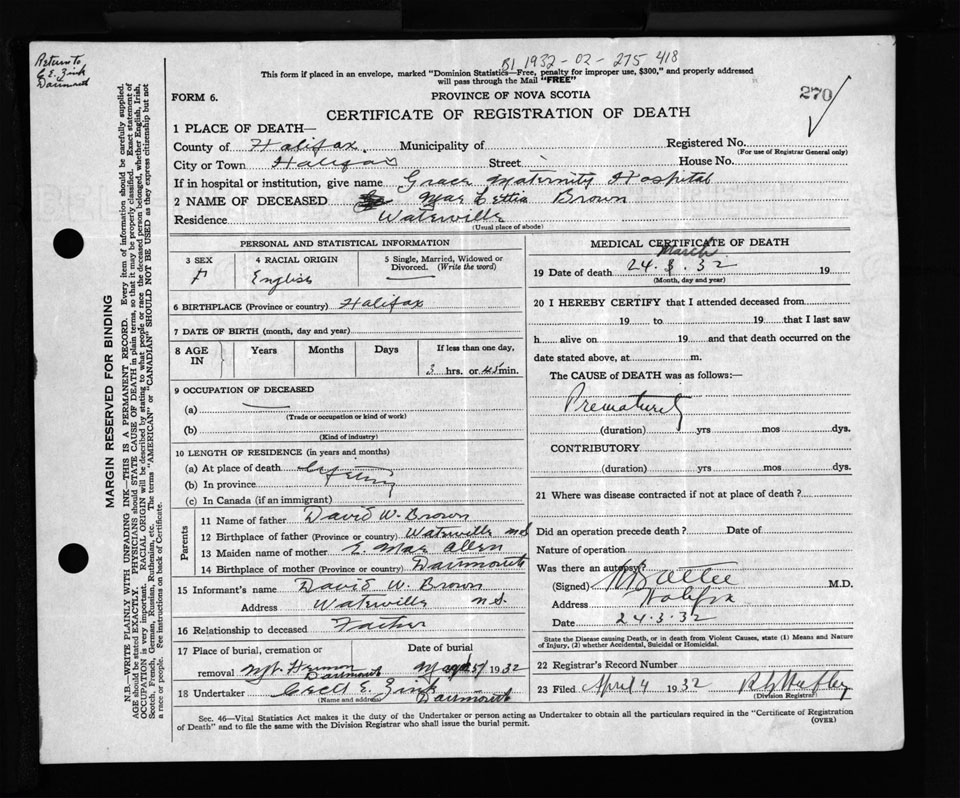 B1 1932-02-275 418
Return to
C. E. Zink
Dartmouth
This form if placed in an envelope, marked "Dominion Statistics—Free, penalty for improper use, $300," and properly addressed
will pass through the Mail "FREE"
270
FORM 6.
PROVINCE OF NOVA SCOTIA
CERTIFICATE OF REGISTRATION OF DEATH
1 PLACE OF DEATH—
County of Halifax. Municipality of Registered No.
(For use of Registrar General only)
City or Town Halifax Street House No.
If in hospital or institution, give name Grace Maternity Hospital
2 NAME OF DECEASED Mae Lettia Brown
Residence Waterville
(Usual place of abode)
MARGIN RESERVED FOR BINDING
N.B.—WRITE PLAINLY WITH UNFADING INK—THIS IS A PERMANENT RECORD. Every item of information should be carefully supplied.
AGE should be stated EXACTLY. PHYSICIANS should STATE CAUSE OF DEATH in plain terms, so that it may be properly classified. Exact statement of
OCCUPATION is very important. RACIAL ORIGIN will be described by stating to what people or race the deceased person belonged, whether English, Irish,
Scotch, French, German, Russian, Ruthenian, etc. The terms "AMERICAN" or "CANADIAN" SHOULD NOT BE USED as they express citizenship but not
a race or people. See instructions on back of Certificate.
PERSONAL AND STATISTICAL INFORMATION
3 SEX
F
4 RACIAL ORIGIN
English
5 Single, Married, Widowed or
Divorced. (Write the word)
6 BIRTHPLACE (Province or country) Halifax
7 DATE OF BIRTH (month, day and year)
8 AGE IN
Years
Months
Days
If less than one day,
3 hrs. or 45 min.
9 OCCUPATION OF DECEASED
(a)
(Trade or occupation or kind of work)
(b)
(Kind of industry)
10 LENGTH OF RESIDENCE (in years and months)
(a) At place of death
(b) In province
(c) In Canada (if an immigrant)
Parents
11 Name of father David W. Brown
12 Birthplace of father (Province or country) Waterville N S
13 Maiden name of mother E. Mae Allen
14 Birthplace of mother (Province or country) Dartmouth
15 Informant's name David W. Brown
Address Waterville N S.
16 Relationship to deceased Father
17 Place of burial, cremation or
removal Mt. Hermon
Dartmouth
Date of burial
1932
18 Undertaker Cecil E. Zink
(Name and address) Dartmouth
MEDICAL CERTIFICATE OF DEATH
March
19 Date of death 24.3.32 19
(Month, day and year)
20 I HEREBY CERTIFY that I attended deceased from
19 to 19 that I last saw
h alive on 19 and that death occurred on the
date stated above, at m.
The CAUSE of DEATH was as follows:—
Prematurity
(duration) yrs mos dys.
CONTRIBUTORY
(duration) yrs mos dys.
21 Where was disease contracted if not at place of death?
Did an operation precede death? Date of
Nature of operation
Was there an autopsy?
(Signed) M.D.
Address Halifax
Date 24.3.32
State the Disease causing Death, or in death from Violent Causes, state (1) Means and Nature
of Injury, (2) whether Accidental, Suicidal or Homicidal.
22 Registrar's Record Number
23 Filed April 4 1932
(Division Registrar)
Sec. 46—Vital Statistics Act makes it the duty of the Undertaker or person acting as Undertaker to obtain all the particulars required in the "Certificate of Registration
of Death" and to file the same with the Division Registrar who shall issue the burial permit.
(OVER)